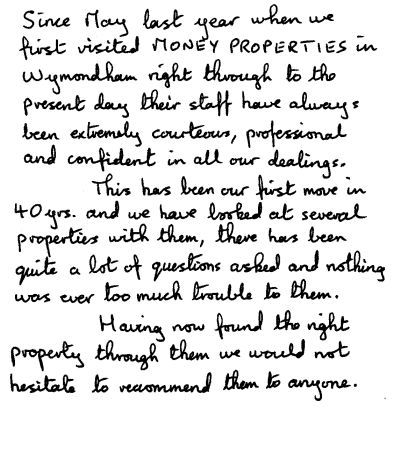 Since May last year when we
first visited MONEY PROPERTIES in
Wymondham right through to the
present day their staff have always
been extremely courteous, professional
and confident in all our dealings.
This has been our first move in
40yrs. and we have looked at several
properties with them, there has been
quite a lot of questions asked and nothing
was ever too much trouble to them.
Having now found the right
property through them we would not
hesitate to recommend them to anyone.